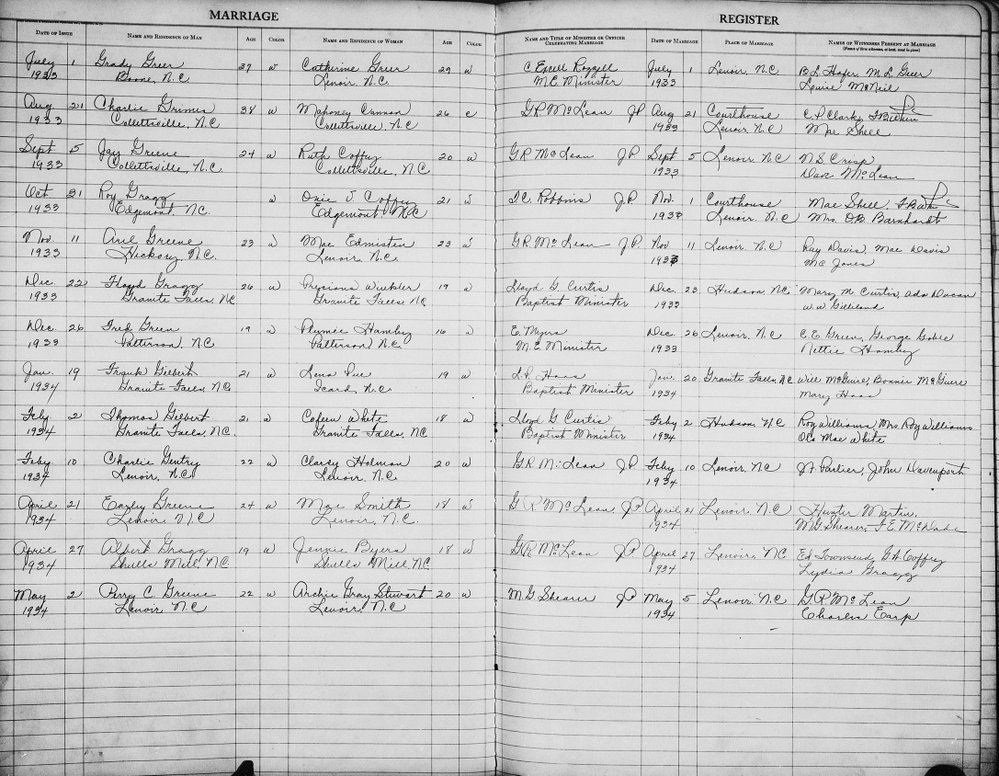 MARRIAGE
DATE OF ISSUE NAME AND RESIDENCE OF MAN AGE COLOR NAME AND RESIDENCE OF WOMAN AGE COLOR
July 1 Grady Greer 27 w Catherine Greer 29 w
1933 Boone, N.C. Lenoir. N.C.
Aug 21 Charlie Grimes 38 w Mahoney Cannon 26 c
1933 Collettsville, N.C Collettsville, N.C
Sept 5 Jay Greene 24 w Ruth Coffey 20 w
1933 Collettsville, N.C. Collettsville, N.C
Oct 31 Roy Gragg w Onie V. Coffey 21 w
1933 Edgemont, N.C. Edgemont, N.C
Nov. 11 Aril Greene 23 w Mae Edmisten 23 w
1933 Hickory, N.C. Lenoir, N.C.
Dec. 22 Floyd Gragg 26 w Winkler 19 w
1933 Granite Falls, N.C Granite Falls, N.C
Dec. 26 Fred Green 19 w Plymee Hamby 16 w
1933 Patterson, N.C Patterson, N.C.
Jan. 19 Frank Gilbert 21 w Lena Pue 19 w
1934 Granite Falls, N.C Icard, N.C.
Feby. 2 Thomas Gilbert 21 w White 18 w
1934 Granite Falls, N.C. Granite Falls, N.C
Feby 10 Charlie Gentry 22 w Holman 20 w
1934 Lenoir, N.C. Lenoir, N.C
April 21 Earley Greene 24 w Mae Smith 18 w
1934 Lenoir N.C Lenoir, N.C.
April 27 Albert Gragg 19 w Jennie Byers 18 w
1934 Shulls Mill, N.C Shulls Mill N.C
May 2 Perry C. Greene 22 w Archie Gray Stewart 20 w
1934 Lenoir N.C Lenoir, N.C.
REGISTER
NAME AND TITLE OF MINISTER OR OFFICER CELEBRATING MARRIAGE DATE OF MARRIAGE PLACE OF MARRIAGE NAMES OF WITNESSES PRESENT AT MARRIAGE
C Excell Rozzell July 1 Lenoir. N.C B.L. Hafer, M.L. Greer
M.E. Minister 1933 Louise McNeil
G.R. McLean J.P. Aug 21 Courthouse C.P. Clarke,
1933 Lenoir N.C Mae Shell
G.R. McLean J.P. Sept 5 Lenoir, N.C N.S Crisp
1933 Dave McLean
Robbins J.P. Nov. 1 Courthouse Mae Shell,
1933 Lenoir, N.C Mrs. D.B. Barnhardt
G.R. McLean J.P. Nov 11 Lenoir, N.C Ray Davis, Mae Davis
1933 Mc Jones
Lloyd G. Curtis Dec. 23 Hudson, N.C Mary M. Curtis, Ada
Baptist Minister 1933 W.W. Gilliland
E. Myers Dec. 26 Lenoir, N.C C.E. Green, George Goble
M.E. Minister 1933 Nettie Hamby
Haas Jan. 20 Granite Falls, N.C Will McGuire, Bonnie McGuire
Baptist Minister 1934 Mary Haas
Lloyd G. Curtis Feby 2 Hudson, N.C Roy Williams, Mrs. Roy Williams
Baptist Minister 1934 Ola Mae White
G.R. McLean J.P. Feby 10 Lenoir, N.C Parlier, John Davenport
1934
G.R. McLean, J.P. April 21 Lenoir. N.C Martin,
1934 M.G. Shearer, McDade
G.R. McLean J.P. April 27 Lenoir, N.C Ed Townsend, G.A. Coffey
1934 Lydia Gragg
M.G. Shearer J.P. May 5 Lenoir, N.C G.R. McLean
1934 Charles Earp